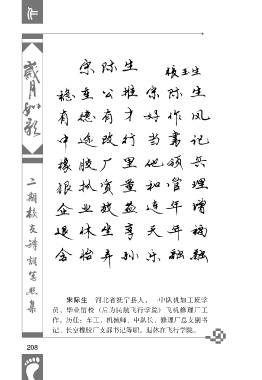 作
岁月如歌
二期校友诗词笔墨集
宋际生
稳重公推宋际生
有德有才好作风
中途改行当书记
橡胶厂里他领兵
狠抓质量和管理
企业效益连年增
退休坐享天年福
含饴弄孙乐融融
宋际生 河北省抚宁县人，一中队机加工班学
员。毕业留校（后为民航飞行学院）飞机修理厂工
作，历任：车工、机械师、中队长、修理厂总支副书
记、长空橡胶厂支部书记等职。退休在飞行学院。
208